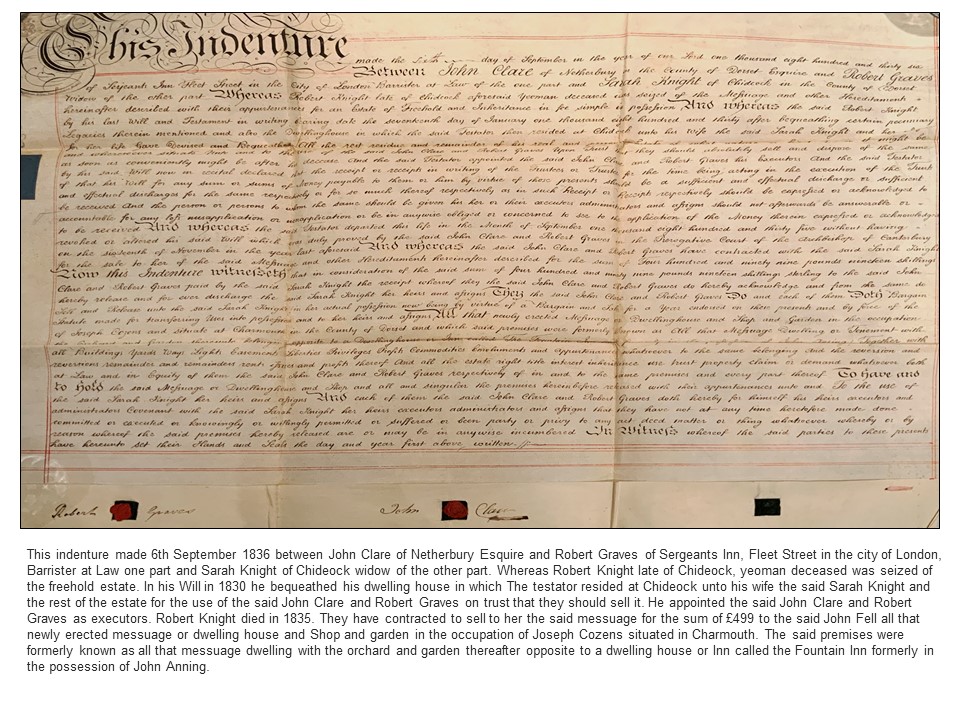 This Indenture made the Sixth day of September in the year of our Lord one thousand eight hundred and thirty six
Between John Clare of Netherbury in the County of Dorset Esquire and Robert Graves
of Serjeants Inn Fleet Street in the City of London Barrister at Law of the one part and Sarah Knight of Chideock in the County of Dorset
Widow of the other part Whereas Robert Knight late of Chideock aforesaid Yeoman deceased was seized of the Messuage and other Hereditaments
hereinafter described with their appurtenances for an Estate of Freehold and Inheritance in fee simple in possession And whereas the said Robert Knight
by his last Will and Testament in writing bearing date the seventeenth day of January one thousand eight hundred and thirty after bequeathing certain pecuniary
Legacies therein mentioned and also the Dwellinghouse in which the said Testator then resided at Chideock unto his wife the said Sarah Knight and her
for her life Gave Devised and Bequeathed All the rest residue and remainder of his real and
they should sell and dispose of the same
as soon as conveniently might be after his decease And the said Testator appointed the said John Clare and Robert Graves his Executors And the said Testator
by his said Will now in recital declared that the receipt or receipts in writing of the Trustees or Trustee for the time being acting in the execution of the Trust
of that his Will for any sum or sums of Money payable to them or him by virtue of these presents should be a sufficient and effectual discharge or sufficient
and effectual discharges for the same respectively or for so much thereof respectively as in such Receipt or Receipts respectively should be expressed or acknowledged to
be received And the person or persons to whom the same should be given his her or their executors administrators and assigns should not afterwards be answerable or
accountable for any loss misapplication or nonapplication or be in anywise obliged or concerned to see to the application of the Money therein expressed or acknowledged
to be received And whereas the said Testator departed this life in the Month of September one thousand eight hundred and thirty five without having
revoked or altered his said Will which was duly proved by the said John Clare and Robert Graves in the Prerogative Court of the Archbishop of Canterbury
on the sixteenth of November in the year last aforesaid And whereas the said John Clare and Robert Graves have contracted with the said Sarah Knight
for the sale to her of the said Messuage and other Hereditaments hereinafter described for the sum Four hundred and ninety nine pounds nineteen shillings
Now this Indenture witnesseth that in consideration of the said sum of four hundred and ninety nine pounds nineteen shillings sterling to the said John
Clare and Robert Graves paid by the said Sarah Knight the receipt whereof they the said John Clare and Robert Graves do hereby acknowledge and from the same do
hereby release and for ever discharge the said Sarah Knight her heirs and assigns They the said John Clare and Robert Graves Do and each of them Doth Bargain
Sell and Release unto the said Sarah Knight in her actual possession now being by virtue of a Bargain and Sale for a Year
Statute made for transferring Uses into possession and to her heirs and assigns All that newly erected Messuage or Dwellinghouse and Shop and Garden in the occupation
of Joseph Cozens and situate at Charmouth in the County of Dorset and which said premises were formerly known as All that Messuage Dwelling or Tenement with
opposite to a Dwellinghouse or Inn called the Fountain Together with
all Buildings Yards Ways Lights Easements Liberties Privileges Profits Commodities Emoluments and appurtenances whatsoever to the same belonging And the reversion and
reversions remainder and remainders rents issues and profits thereof And all the estate right title interest inheritance use trust property claim and demand whatsoever both
at Law and in Equity of them the said John Clare and Robert Graves respectively of in and to the same premises and every part thereof To have and
to hold the said Messuage or Dwellinghouse and Shop and all and singular the premises hereinbefore released with their appurtenances unto and To the use of
the said Sarah Knight her heirs and assigns And each of them the said John Clare and Robert Graves doth hereby for himself his heirs executors and
administrators Covenant with the said Sarah Knight her heirs executors administrators and assigns that they have not at any time heretofore made done
committed or executed or knowingly or willingly permitted or suffered or been party or privy to any act deed matter or thing whatsoever whereby or by
reason whereof the said premises hereby released are or may be in anywise incumbered In Witness whereof the said parties to these presents
have hereunto set their Hands and Seals the day and year first above written.
Robert Graves John Clare
This indenture made 6th September 1836 between John Clare of Netherbury Esquire and Robert Graves of Sergeants Inn, Fleet Street in the city of London,
Barrister at Law one part and Sarah Knight of Chideock widow of the other part. Whereas Robert Knight late of Chideock, yeoman deceased was seized of
the freehold estate. In his Will in 1830 he bequeathed his dwelling house in which The testator resided at Chideock unto his wife the said Sarah Knight and
the rest of the estate for the use of the said John Clare and Robert Graves on trust that they should sell it. He appointed the said John Clare and Robert
Graves as executors. Robert Knight died in 1835. They have contracted to sell to her the said messuage for the sum of £499 to the said John Fell all that
newly erected messuage or dwelling house and Shop and garden in the occupation of Joseph Cozens situated in Charmouth. The said premises were
formerly known as all that messuage dwelling with the orchard and garden thereafter opposite to a dwelling house or Inn called the Fountain Inn formerly in
the possession of John Anning.